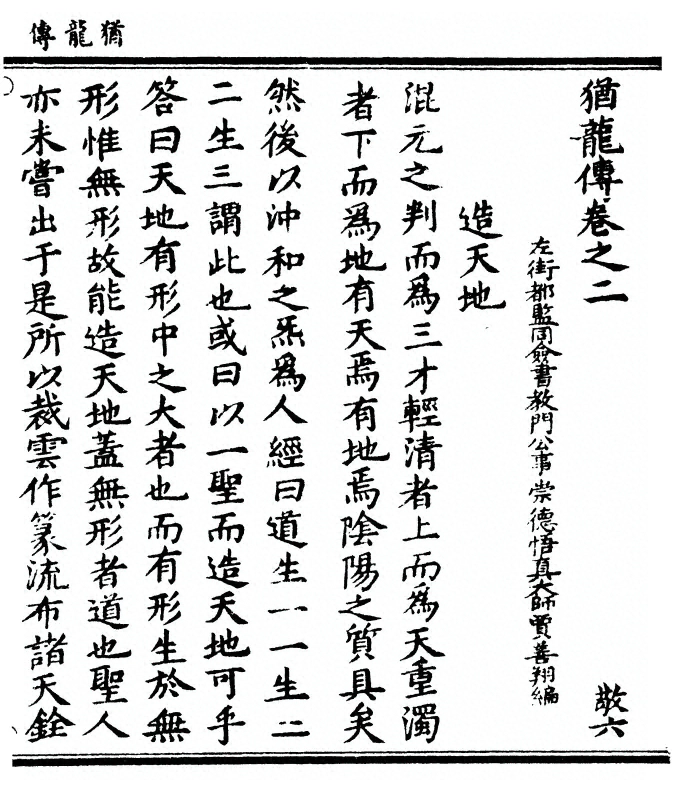 猶龍傳
猶龍傳卷之二
敬六
左街都監同僉書教門公事崇德悟真大師賈善翔編
造天地
混元之判而為三才輕清者上而為天重濁
者下而為地有天焉有地焉陰陽之質具矣
然後以沖和之炁為人經曰道生一一生二
二生三謂此也或曰以一聖而造天地可乎
答曰天地有形中之大者也而有形生於無
形惟無形故能造天地蓋無形者道也聖人
亦未嘗出于是所以裁雲作篆流布諸天銓